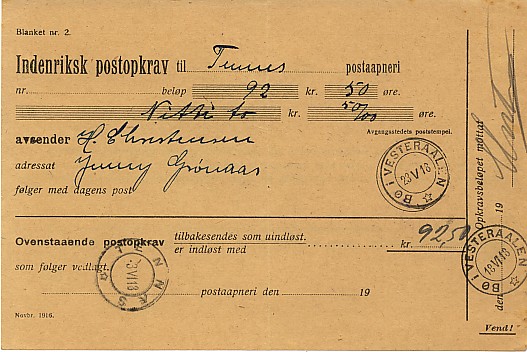 Blanket nr. 2.
Indenriksk postopkrav til Tunnes postaapneri
nr. beløp 92 kr. 50 øre.
Nitti to kr. 50/00 øre.
avsender H. Christensen
Avgangsstedets poststempel.
adressat Jenny Grønaas
følger med dagens post
BØ I VESTERAALEN 23 V 18
Ovenstaaende postopkrav tilbakesendes som uindløst.
er indløst med kr. 92,50
som følger vedlagt.
postaapneri den 19
Novbr. 1916.
Opkravsbeløpet mottat
den 19
BØ I VESTERAALEN 18 VI 18
Vend!